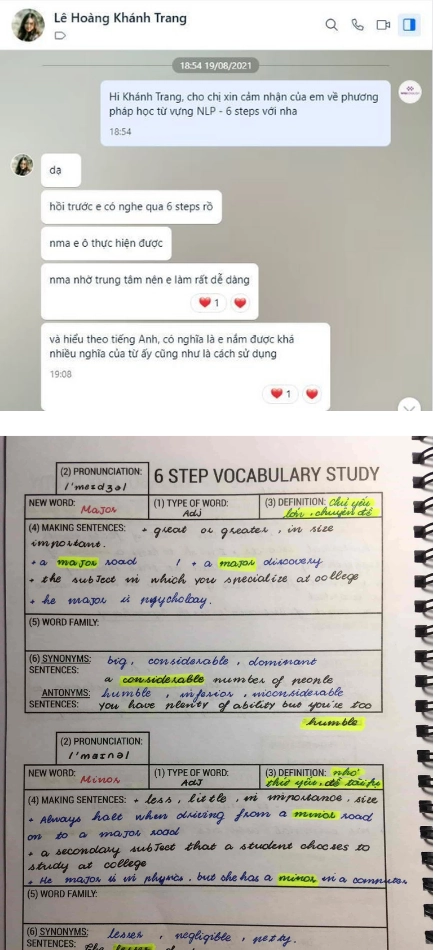 Lê Hoàng Khánh Trang
18:54 19/08/2021
Hi Khánh Trang, cho chị xin cảm nhận của em về phương
pháp học từ vựng NLP - 6 steps với nha
18:54
dạ
hồi trước e có nghe qua 6 steps rõ
nma e ô thực hiện được
nma nhờ trung tâm nên e làm rất dễ dàng
1
và hiểu theo tiếng Anh, có nghĩa là e nắm được khá
nhiều nghĩa của từ ấy cũng như là cách sử dụng
19:08
1
(2) PRONUNCIATION:
/ˈmeɪdʒə/
6 STEP VOCABULARY STUDY
NEW WORD: Major
(1) TYPE OF WORD: Adj
(3) DEFINITION: chủ yếu
lớn, chuyên đề
(4) MAKING SENTENCES: + great or greater, in size
important.
+ a major road / + a major discovery
+ the subject in which you specialize at college
+ he major is psycholoay.
(5) WORD FAMILY:
(6) SYNONYMS: big, considerable, dominant
SENTENCES: a considerable number of people
ANTONYMS: humble, inferior, inconsiderable
SENTENCES: you have plenty of ability but you're too
humble
(2) PRONUNCIATION:
/ˈmaɪnə/
NEW WORD: Minor
(1) TYPE OF WORD: Adj
(3) DEFINITION: nhỏ
thứ yếu, đề tài
(4) MAKING SENTENCES: + less, little, in importance, size
+ Always halt when driving from a minor road
on to a major road
+ a secondary subject that a student chooses to
study at college
+ He major is in physics, but she has a minor in a computer
(5) WORD FAMILY:
(6) SYNONYMS: lesser, negligible, petty.
SENTENCES: the lesser